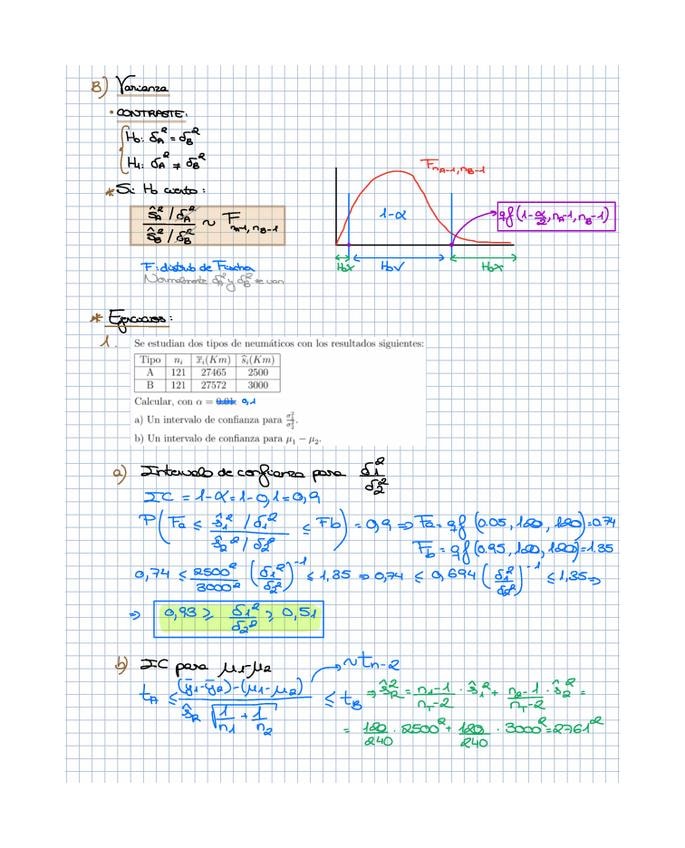 B) Varianza
• CONTRASTE:
H₀: σ_A² = σ_B²
H₁: σ_A² ≠ σ_B²
* Si H₀ cierto:
(ŝ_A² / σ_A²) / (ŝ_B² / σ_B²) ~ F_{n_A-1, n_B-1}
F_{n_A-1, n_B-1}
1-α
qf(1-α/2, n_A-1, n_B-1)
H₀x H₀v H₀x
F: distrib de Fischer
Normalmente σ_A² y σ_B² se van
* Ejercicios:
1. Se estudian dos tipos de neumáticos con los resultados siguientes:
Tipo nᵢ x̄ᵢ(Km) ŝᵢ(Km)
A 121 27465 2500
B 121 27572 3000
Calcular, con α = 0,1
a) Un intervalo de confianza para σ₁²/σ₂².
b) Un intervalo de confianza para μ₁ − μ₂.
a) Intervalo de confianza para σ₁²/σ₂²
IC = 1-α = 1-0,1 = 0,9
P(Fa ≤ (ŝ₁² / σ₁²) / (ŝ₂² / σ₂²) ≤ Fb) = 0,9 ⇒ Fa = qf (0.05, 120, 120) = 0.74
Fb = qf (0.95, 120, 120) = 1.35
0,74 ≤ 2500²/3000² (σ₁²/σ₂²)⁻¹ ≤ 1,35 ⇒ 0,74 ≤ 0,694 (σ₁²/σ₂²)⁻¹ ≤ 1,35 ⇒
⇒ 0,93 ≥ σ₁²/σ₂² ≥ 0,51
b) IC para μ₁-μ₂
~ t_{n-2}
t_A ≤ ((ȳ₁-ȳ₂)-(μ₁-μ₂)) / (ŝ_R √(1/n₁ + 1/n₂)) ≤ t_B ⇒ ŝ_R² = (n₁-1)/(n_T-2) · ŝ₁² + (n₂-1)/(n_T-2) · ŝ₂² =
= 120/240 · 2500² + 120/240 · 3000² = 2761²